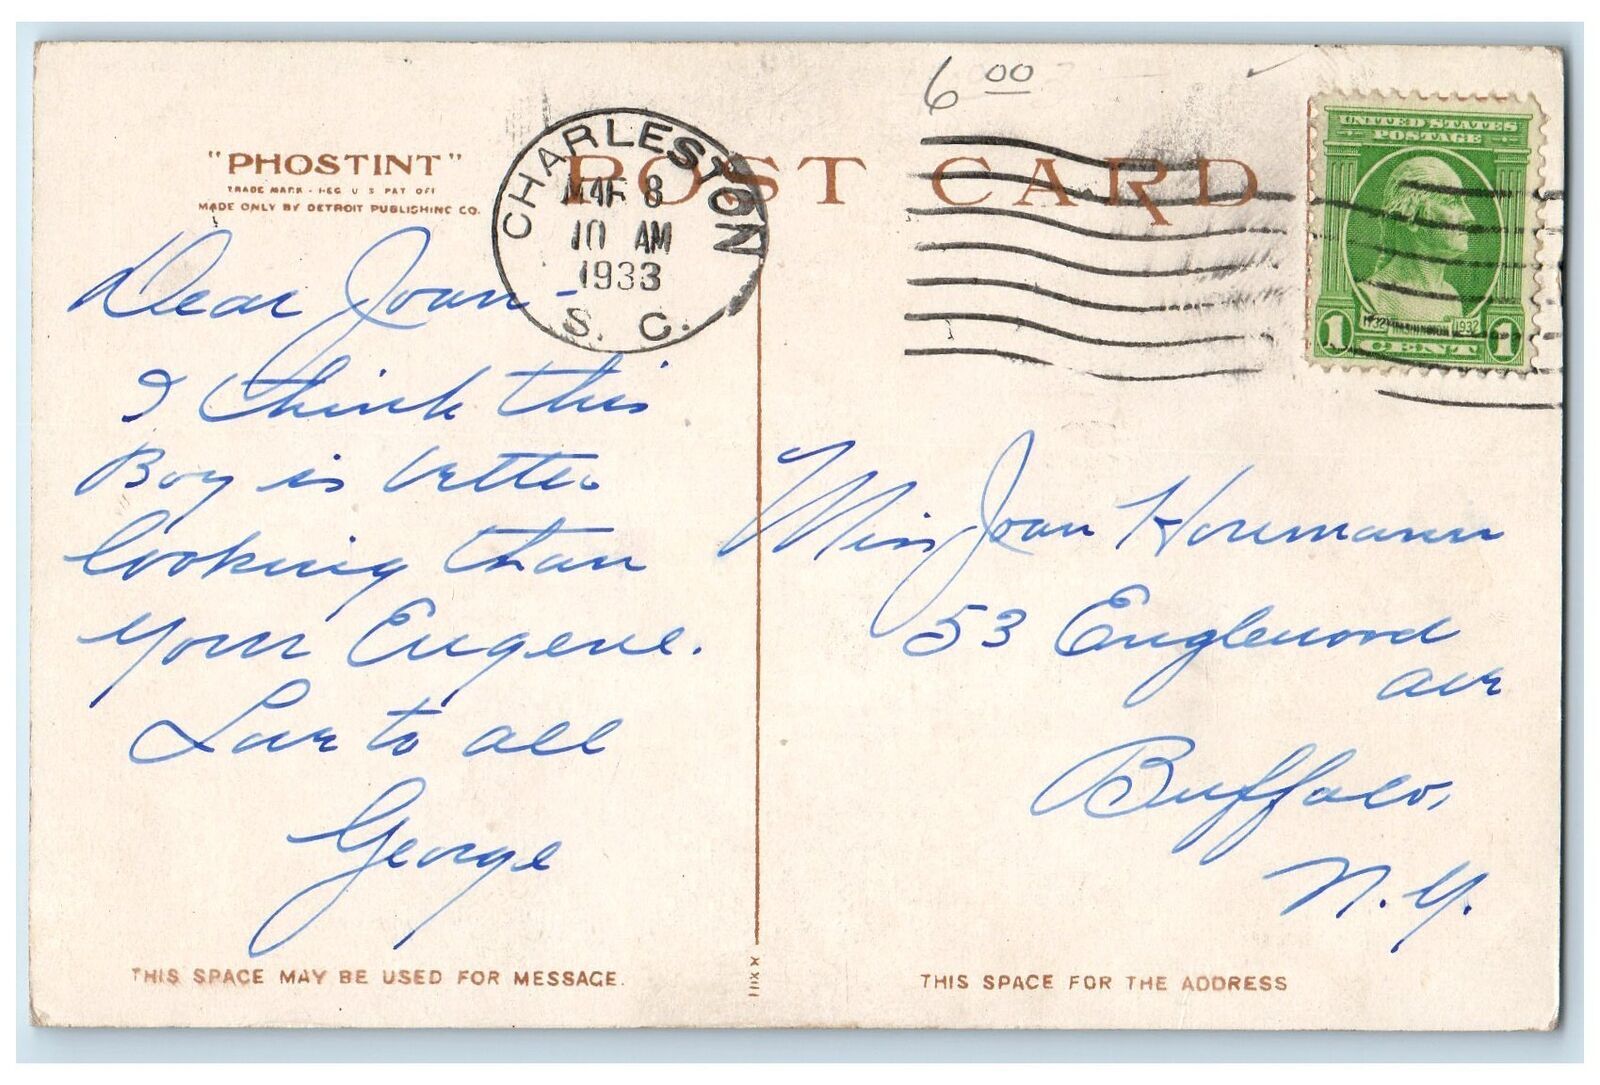 6 00
"PHOSTINT"
TRADE MARK - REG U S PAT OFF
MADE ONLY BY DETROIT PUBLISHING CO.
POST CARD
CHARLESTON
MAR 8
10 AM
1933
S. C.
UNITED STATES
POSTAGE
1732 WASHINGTON 1932
1 CENT 1
Dear Joan -
I think this
Boy is better
looking than
your Eugene.
Love to all
George
Miss Joan Hornmann
53 Englewood
ave
Buffalo,
N.Y.
THIS SPACE MAY BE USED FOR MESSAGE.
THIS SPACE FOR THE ADDRESS